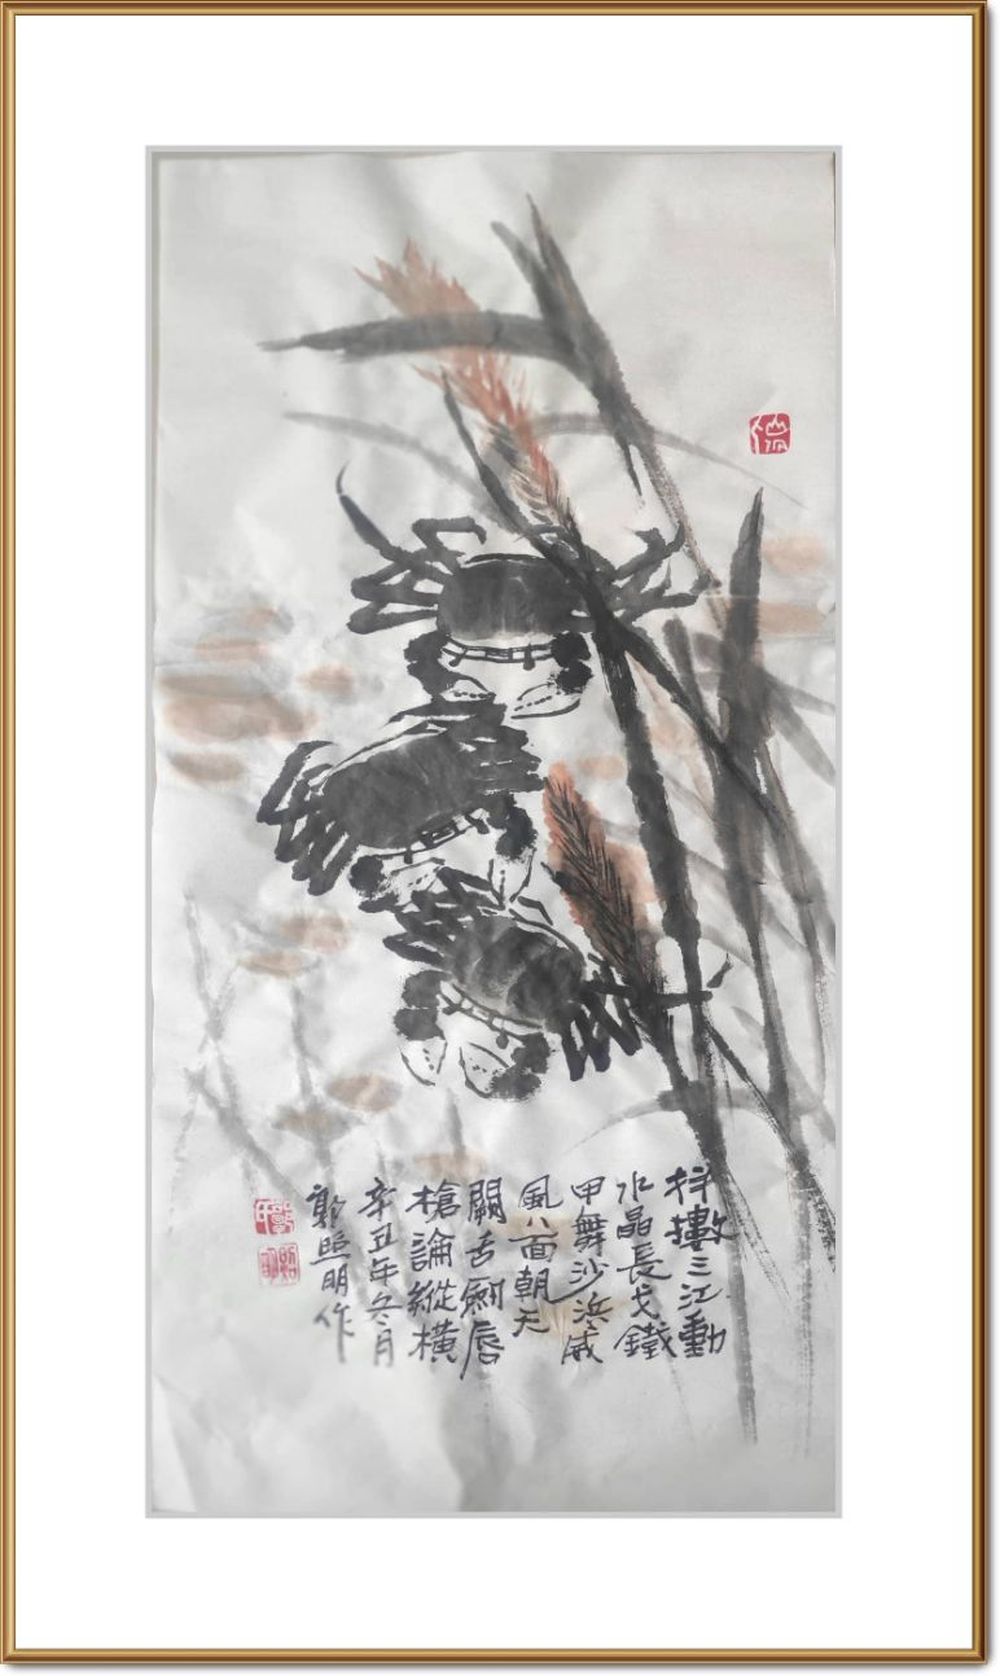 抖摟三江動
水晶長戈鐵
甲舞沙浜威
風八面朝天
闕舌劍唇
槍論縱橫
辛丑年冬月
郭照明作